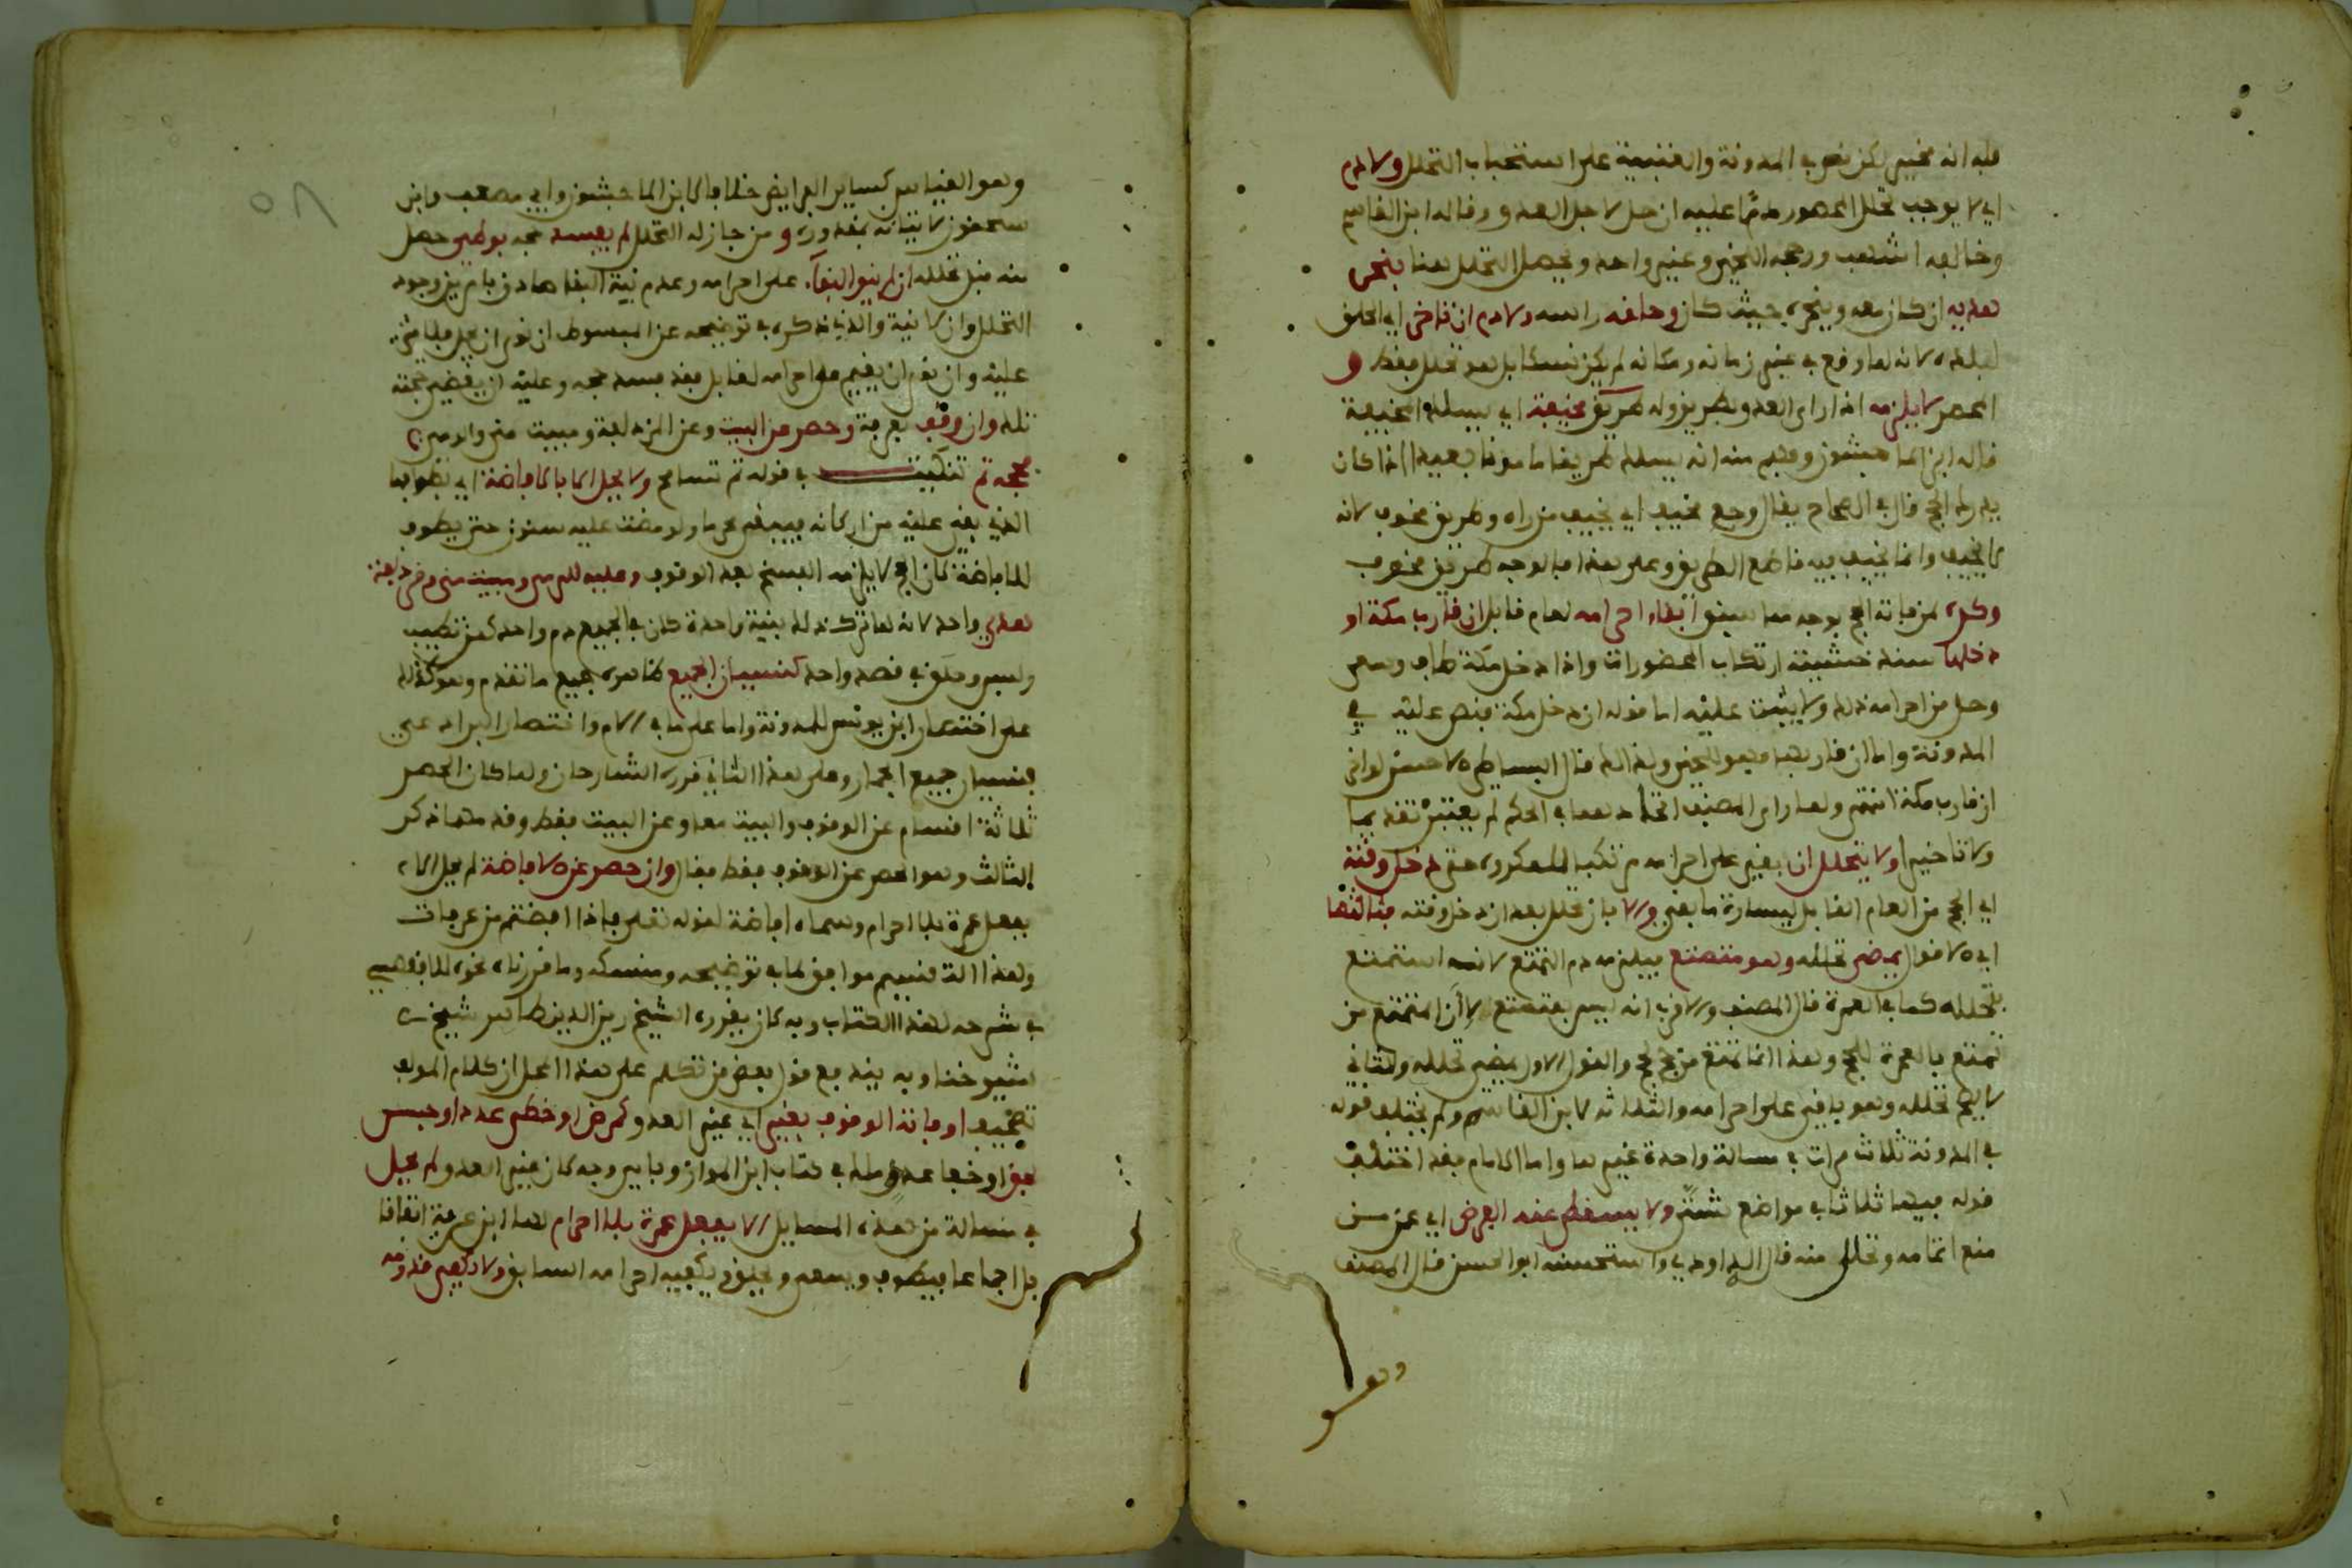 فله انه مخير لكن نص في المدونة والعتبية على استحباب التحلل ولا دم
اي لا يوجب تحلل المحصور دما عليه ان حل لاجل العدو وقاله ابن القاسم
وخالفه اشهب ورجحه اللخمي وغير واحد ويحصل التحلل هنا بنحر
هديه ان كان معه وينحره حيث كان وحلقه راسه ولا دم ان تاخر اي الحلق
لبلده لانه لما وقع في غير زمانه ومكانه لم يكن نسكا بل هو تحلل فقط و
المحصر لا يلزمه اذا راى العدو بطريق وله طريق مخيفة اي يسلك المخيفة
قاله ابن الماجشون وفهم منه انه يسلك طريقا مامونا بعيدا اذا كان
يدرك الحج قال في الصحاح يقال وجع مخيف اي يخيف من راه وطريق مخوف لانه
لا يخيف وانما يخيف فيه قاطع الطريق وعلى هذا فالوجه طريق مخوف
وكره لمن فاته الحج بوجه مما سبق ابقاء احرامه لعام قابل ان قارب مكة او
دخلها سنده خشية ارتكاب المحضورات واذا دخل مكة طاف وسعى
وحل من احرامه ذلك ولا يثبت عليه اما قوله ان دخل مكة فنص عليه في
المدونة واما ان قاربها فهو للخمي ولذا قال البساطي الاحسن لو اتى
ان قارب مكة انتهى ولما راى المصنف اتحادهما في الحكم لم يعتبر تقديما
ولا تاخيرا ولا يتحلل ان بقي على احرامه مرتكبا للمكروه حتى دخل وقته
اي الحج من العام القابل ليسارة ما بقي والا بان تحلل بعد ان دخل وقته فثالثها
اي الاقوال يمضي تحلله وهو متمتع فيلزمه دم التمتع لانه استمتع
بتحلله كما في العمرة قال المصنف والاقرب انه ليس بمتمتع لان المتمتع من
تمتع بالعمرة للحج وهذا انما تمتع من حج لحج والقول الاول يمضي تحلله والثاني
لا يصح تحلله وهو باق على احرامه والثلاثة لابن القاسم ولم يختلف قوله
في المدونة ثلاث مرات في مسالة واحدة غيرها واما الامام فقد اختلف
قوله فيها ثلاثا في مواضع شتى ولا يسقط عنه الفرض اي عن من
منع اتمامه وتحلل منه قال الداودي واستحسنه ابو الحسن قال المصنف
وهو
٥٨
وهو القياس كساير الفرايض خلافا لابن الماجشون وابي مصعب وابن
سحنون لاتيانه بمقدوره و من جاز له التحلل لم يفسد حجه بوطء حصل
منه قبل تحلله ان لم ينو البقآء على احرامه وعدم نية البقا صادق بامرين وجود
التحلل وان لا نية والذي ذكره في توضيحه عن المبسوط ان نوى ان يحل فلا شيء
عليه وان نوى ان يقيم على احرامه لقابل فقد فسد حجه وعليه ان يقضي حجته
تلك وان وقف بعرفة وحصر عن البيت وعن المزدلفة ومبيت منى والرمي
حجه تم تنكيت في قوله تم تسامح ولا يحل الا بالافاضة اي بطوافها
الذي بقي عليه من اركانه فيبقى محرما ولو مضت عليه سنون حتى يطوف
للافاضة لان الحج لا يلزمه الفسخ بعد الوقوف وعليه للرمي ومبيت منى ومزدلفة
هدي واحد لانه لما ترك ذلك بنية واحدة كان في الجميع دم واحد كمن تطيب
ولبس وحلق في قصد واحد كنسيان الجميع ظاهره جميع ما تقدم وهو كذلك
على اختصار ابن يونس للمدونة واما على ما في الام واختصار البرادعي
فنسيان جميع الجمار وعلى هذا الثاني قرره الشارحان ولما كان الحصر
ثلاثة اقسام عن الوقوف والبيت معا وعن البيت فقط وقدمهما ذكر
الثالث وهو الحصر عن الوقوف فقط فقال وان حصر عن الافاضة لم يحل الا
بفعل عمرة بلا احرام وسماه افاضة لقوله تعلى فاذا افضتم من عرفات
وهذا التقسيم موافق لما في توضيحه ومنسكه وما قررناه نحوه للاقفهسي
في شرحه لهذا الكتاب وبه كان يقرره الشيخ زين الدين طاهر شيخ
شيوخنا وبه يندفع قول بعض من تكلم على هذا المحل ان كلام المولف
تصحيف او فاته الوقوف بغير اي غير العدو كمرض او خطى عدد او حبس
بحق او خفا عد ومثله في كتاب ابن المواز وباي وجه كان غير العدو لم يحل
في مسالة من هذه المسايل الا بفعل عمرة بلا احرام لها ابن عرفة اتفاقا
بل اجماعا فيطوف ويسعى ويحلق يكفيه احرامه السابق ولا يكفي قدومه